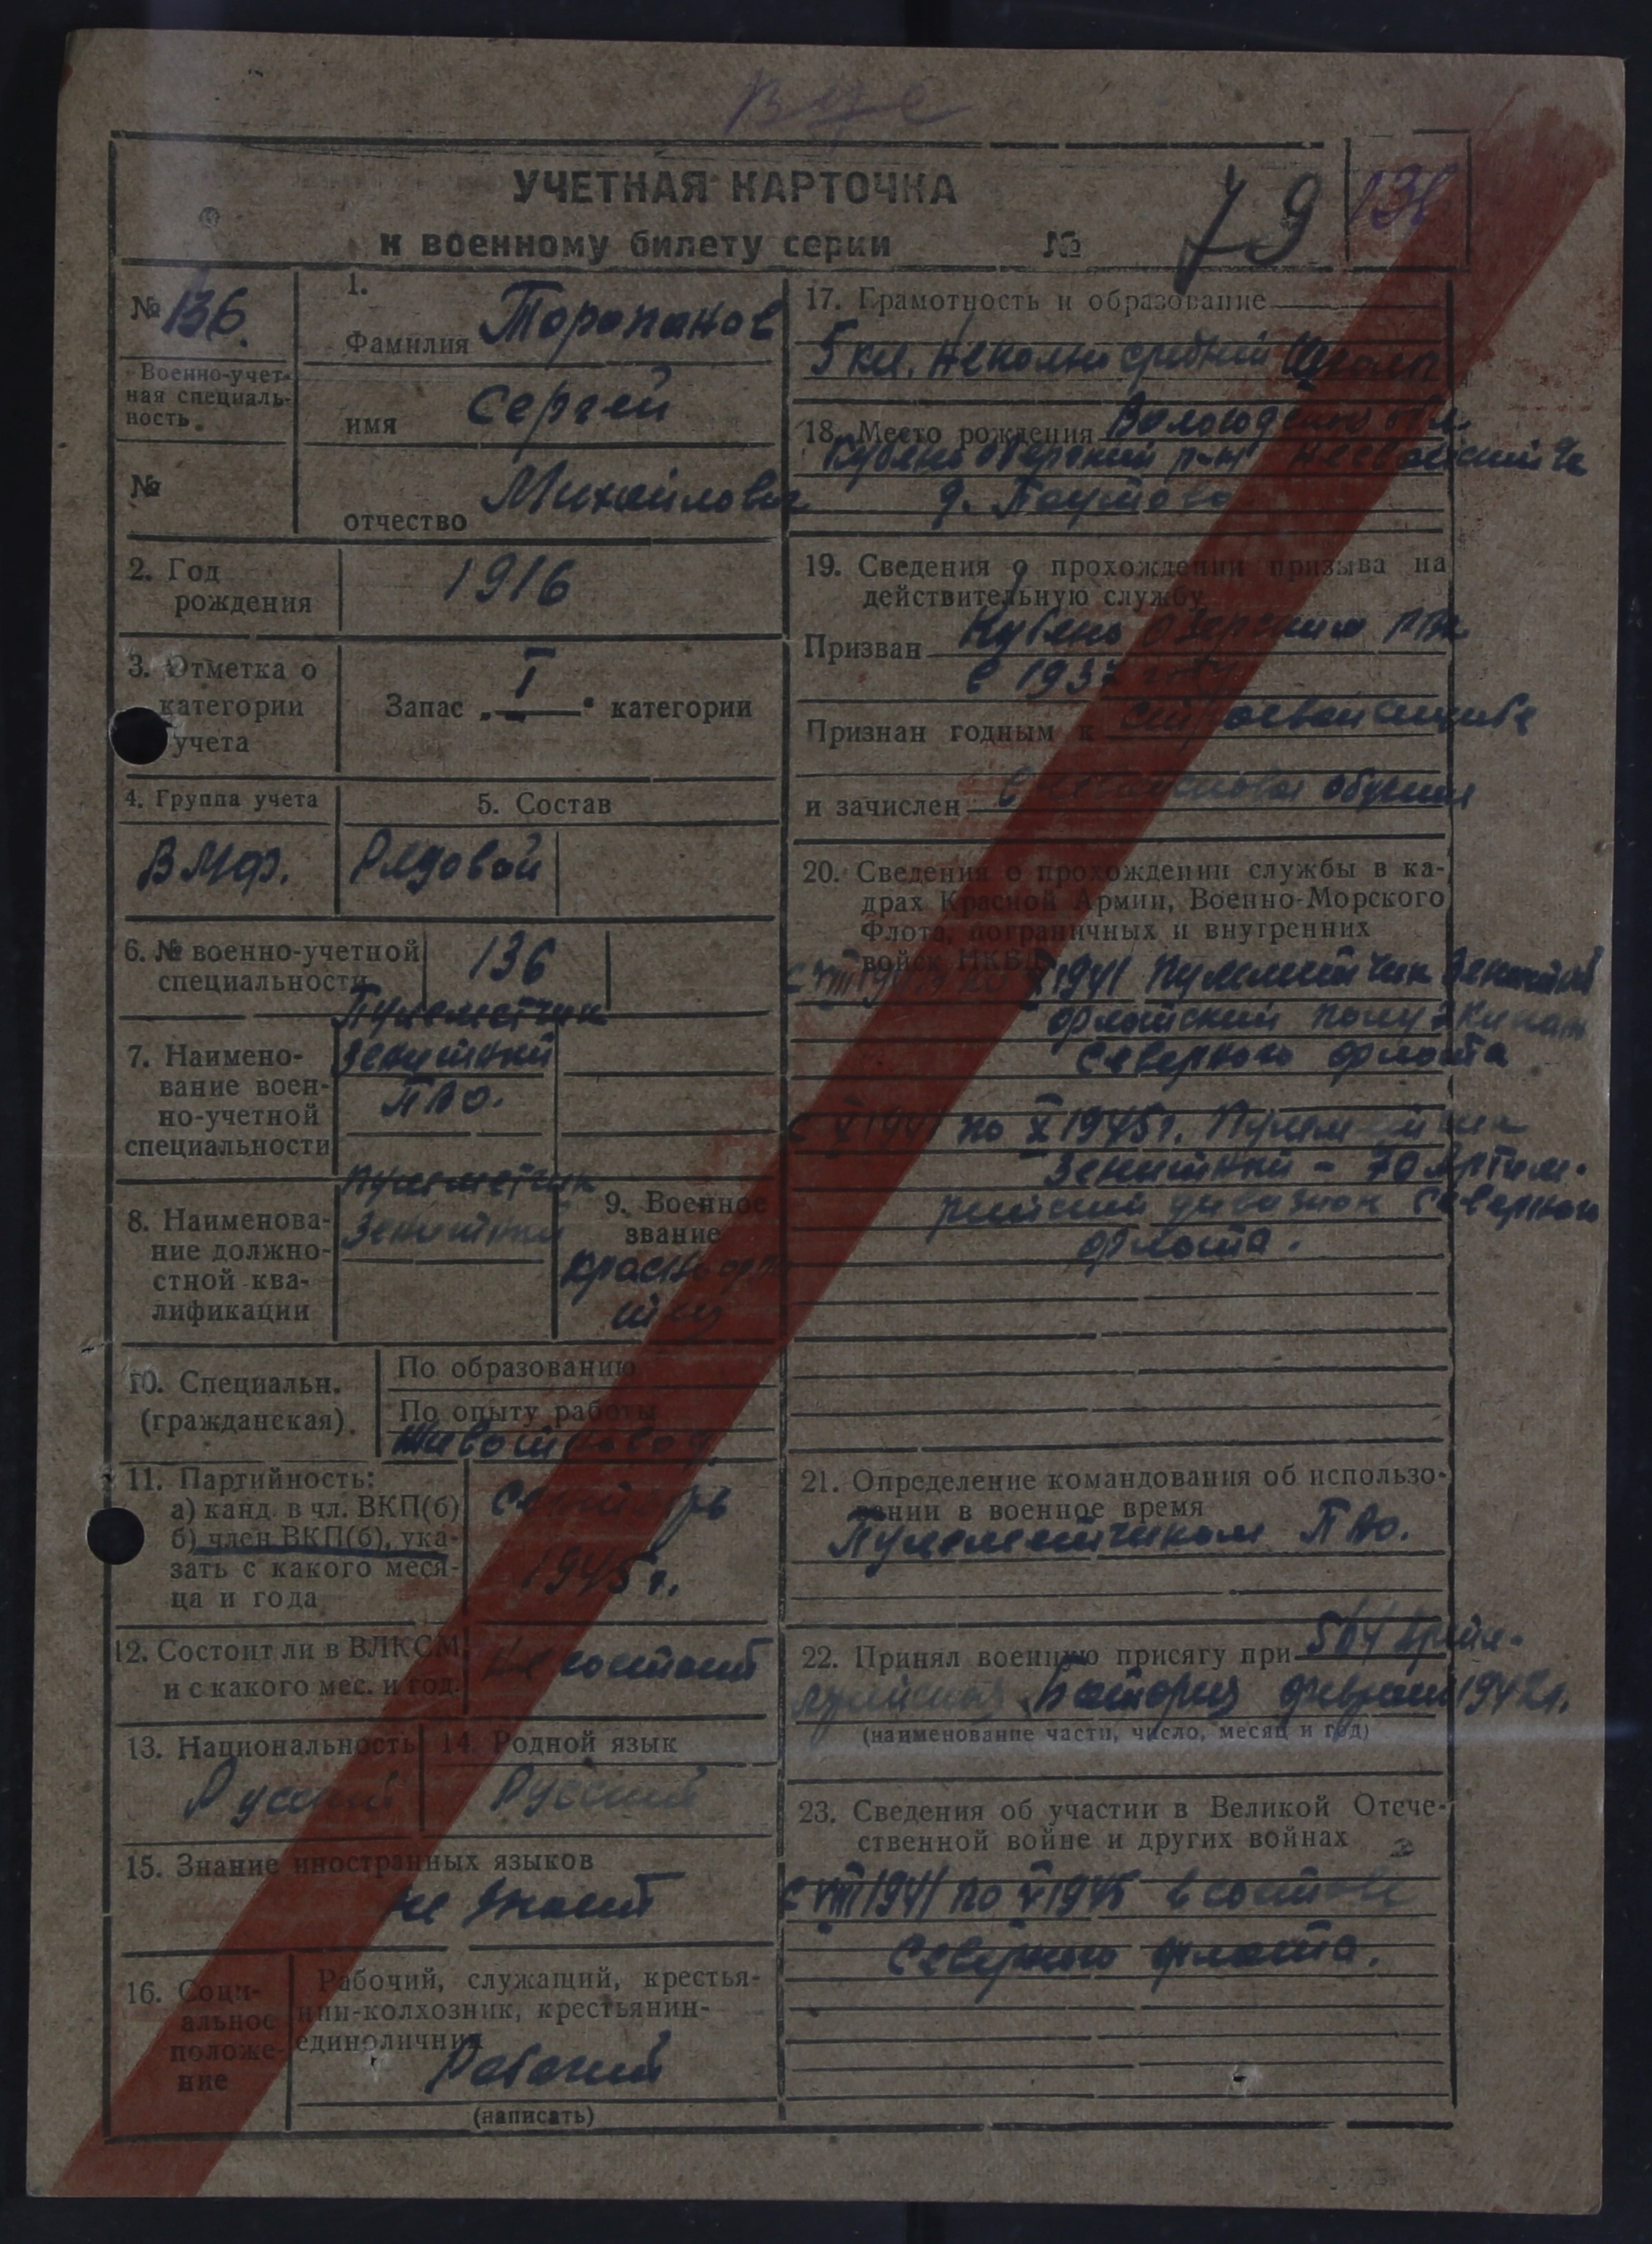 УЧЕТНАЯ КАРТОЧКА
к военному билету серии № 79
№ 136.
Военно-учет-
ная специаль-
ность.
№
1.
Фамилия Торопанов
имя Сергей
отчество Михайлович
2. Год
рождения
1916
3. Отметка о
категории
учета
Запас „I“ категории
4. Группа учета
5. Состав
ВМФ. Рядовой
6. № военно-учетной
специальности
136
7. Наимено-
вание воен-
но-учетной
специальности
Пулеметчик
зенитный
ПВО.
8. Наименова-
ние должно-
стной ква-
лификации
пулеметчик
зенитный
9. Военное
звание
10. Специальн.
(гражданская)
По образованию
По опыту работы
11. Партийность:
а) канд. в чл. ВКП(б)
б) член ВКП(б), ука-
зать с какого меся-
ца и года
сентябрь
1945 г.
12. Состоит ли в ВЛКСМ
и с какого мес. и год.
Не состоит
13. Национальность
Русский
14. Родной язык
Русский
15. Знание иностранных языков
не знает
16. Соци-
альное
положе-
ние
Рабочий, служащий, крестья-
нин-колхозник, крестьянин-
единоличник
Рабочий
(написать)
17. Грамотность и образование
5 кл. неполн средней школы
18. Место рождения Вологодской обл.
Кубено Озерский р-н
д.
19. Сведения о прохождении призыва на
действительную службу
Призван Кубено Озерским РВК
в 1937 году
Признан годным к строевой службе
и зачислен обучения
20. Сведения о прохождении службы в ка-
драх Красной Армии, Военно-Морского
Флота, пограничных и внутренних
войск НКВД
с VIII 1941 по X 1941 Пулеметчик зенитный
флотский полуэкипаж
Северного флота
с X 1941 по X 1945 г. Пулеметчик
зенитный - 70 Артил.
рийский дивизион Северного
флота.
21. Определение командования об использо-
вании в военное время
Пулеметчиком ПВО.
22. Принял военную присягу при
Батарея феврале 1942 г.
(наименование части, число, месяц и год)
23. Сведения об участии в Великой Отече-
ственной войне и других войнах
с VIII 1941 по V 1945 в составе
Северного флота.